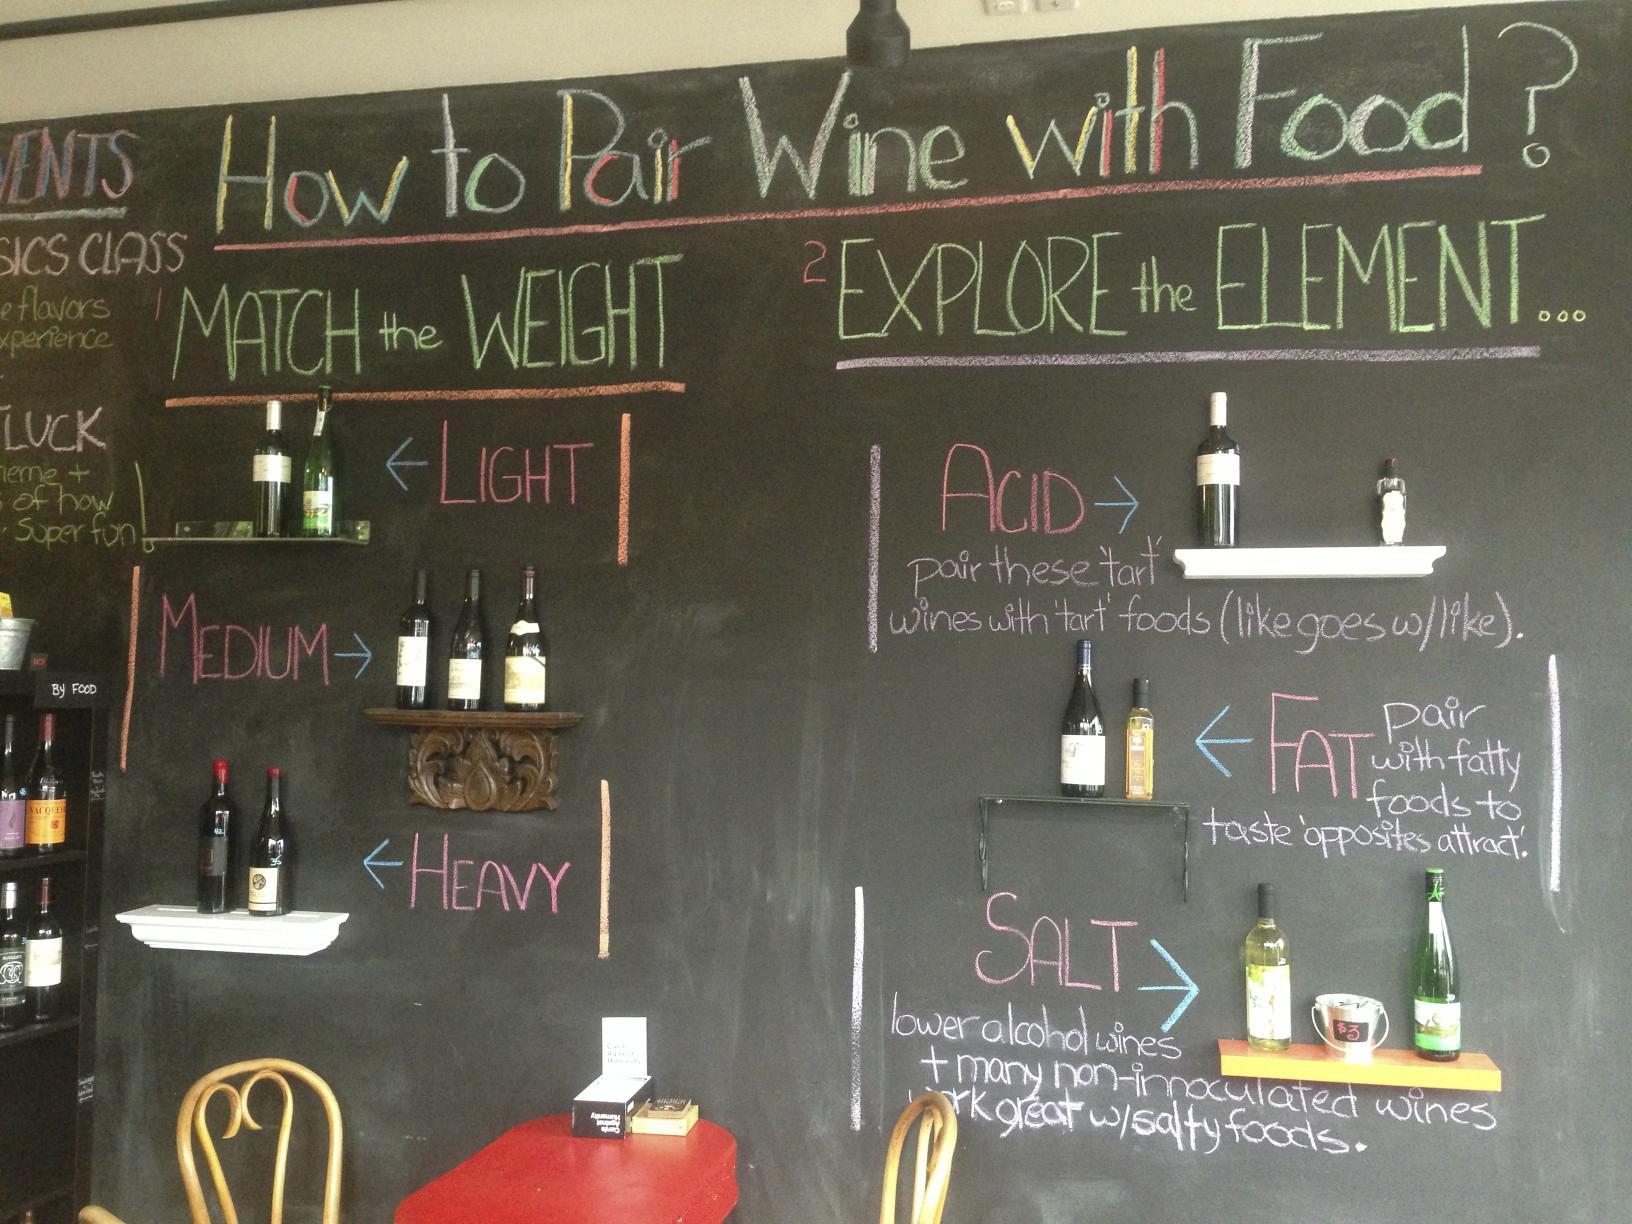 How to Pair Wine with Food?
VENTS
SICS CLASS
e flavors
xperience
TLUCK
heme +
s of how
Super fun!
1 MATCH the WEIGHT
LIGHT
MEDIUM
HEAVY
2 EXPLORE the ELEMENT...
ACID
pair these 'tart'
wines with 'tart' foods (like goes w/like).
FAT pair
with fatty
foods to
taste 'opposites attract'.
SALT
lower alcohol wines
+ many non-innoculated wines
work great w/salty foods.
$3
BY FOOD
VACQUEY
Cards
Against
Humanity
Cards
Against
Humanity